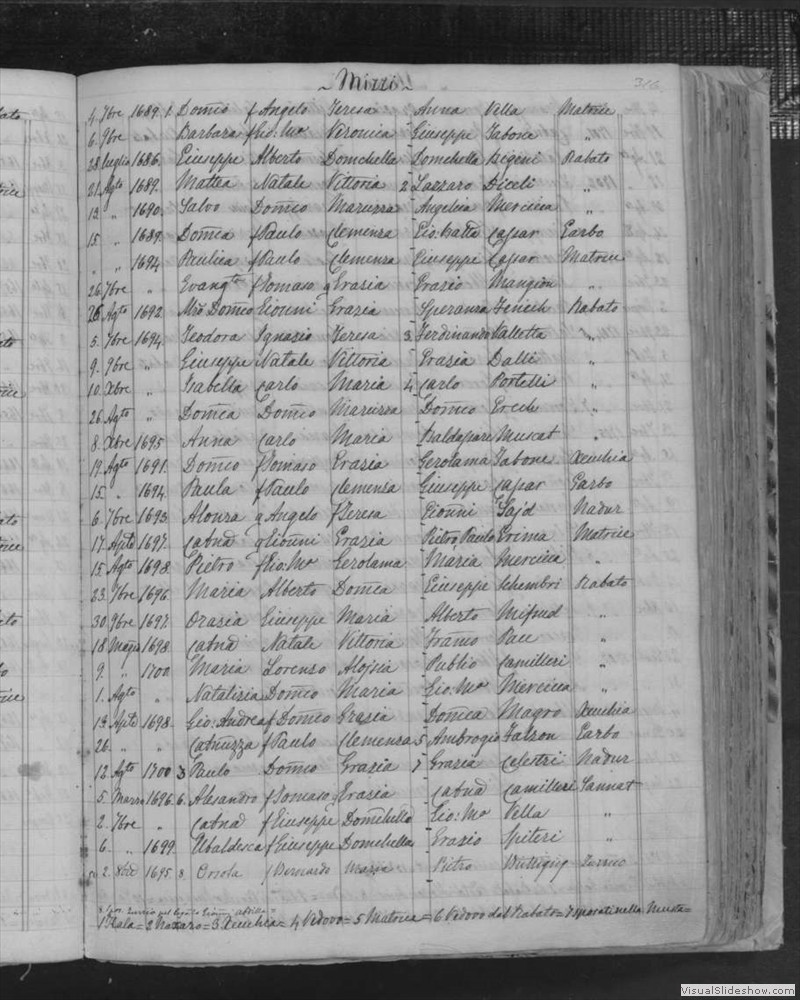 ~ Mizzi ~
316
4. 7bre 1689. 1. Domco f Angelo Teresa - Anna Vella Matrice
6. 9bre " Barbara f Gio: Ma Veronica - Giuseppe Tabone "
28 luglio 1686. Giuseppe Alberto Domchella - Domchella Bigeni Rabato
21. Agto 1689. Mattea Natale Vittoria 2 Lazzaro Diceli "
13 " 1690. Salvo Domco Maruzza - Angelica Mercieca "
15 " 1689. Domca f Paulo Clemenza - Gio: Batta Cassar Garbo
" " 1694 Paulica f Paulo Clemenza - Giuseppe Cassar Matrice
26. 7bre " Evangta f Tomaso g Grazia - Grazio Mangion "
26. Agto 1692 Mro Domco Gioanni Grazia - Speranza Fenech Rabato
5. 7bre 1694. Teodora Ignazio Teresa 3. Ferdinando Valletta "
9. 9bre " Giuseppe Natale Vittoria - Grazia Dalli "
10. Xbre " Isabella Carlo Maria 4 Carlo Portelli "
26. Agto " Domca Domco Maruzza - Domco Grech "
8. Xbre 1695 Anna Carlo Maria - Baldasare Muscat "
19. Agto 1691. Domco f Tomaso Grazia - Gerolama Tabone Xeuchia
15. " 1694. Paula f Paulo Clemenza - Giuseppe Cassar Garbo
6. 7bre 1693. Alonza g Angelo f Teresa - Gioanni Said Nadur
17. Aple 1697. Catna g Gioanni Grazia - Pietro Paulo Grima Matrice
15. Agto 1698. Pietro f Gio: Ma Gerolama - Maria Mercieca "
23. 7bre 1696. Maria Alberto Domca - Giuseppe Schembri Rabato
30. 9bre 1697. Orazia Giuseppe Maria - Alberto Mifsud "
18 Maggo 1698. Catna Natale Vittoria - Franco Pace "
9. " 1700 Maria Lorenzo Aloisia - Publio Camilleri "
1. Agto " Natalizia Domco Maria - Gio. Ma Mercieca "
13. Aple 1698. Gio: Andrea f Domco Grazia - Domca Magro Xeuchia
26. " " Catnuzza f Paulo Clemenza 5 Ambrogio Farson Garbo
12. Agto 1700 3 Paulo Domco Grazia 7 Grazia Celestri Nadur
5. Marzo 1696. 6. Alesandro f Tomaso g Grazia - Catna Camilleri Sannat
2. 7bre " Catna f Giuseppe Domchella - Gio: Ma Vella "
6. " 1699. Ubaldesca f Giuseppe Domchella - Grazio Spiteri "
2. 1695 8. Orsola f Bernardo Mazza - Pietro Buttigieg
1 Gala = 2 Nazzaro = 3 Xeuchia = 4 Vedovo = 5 Matrice = 6 Vedovo dal Rabato =
VisualSlideshow.com